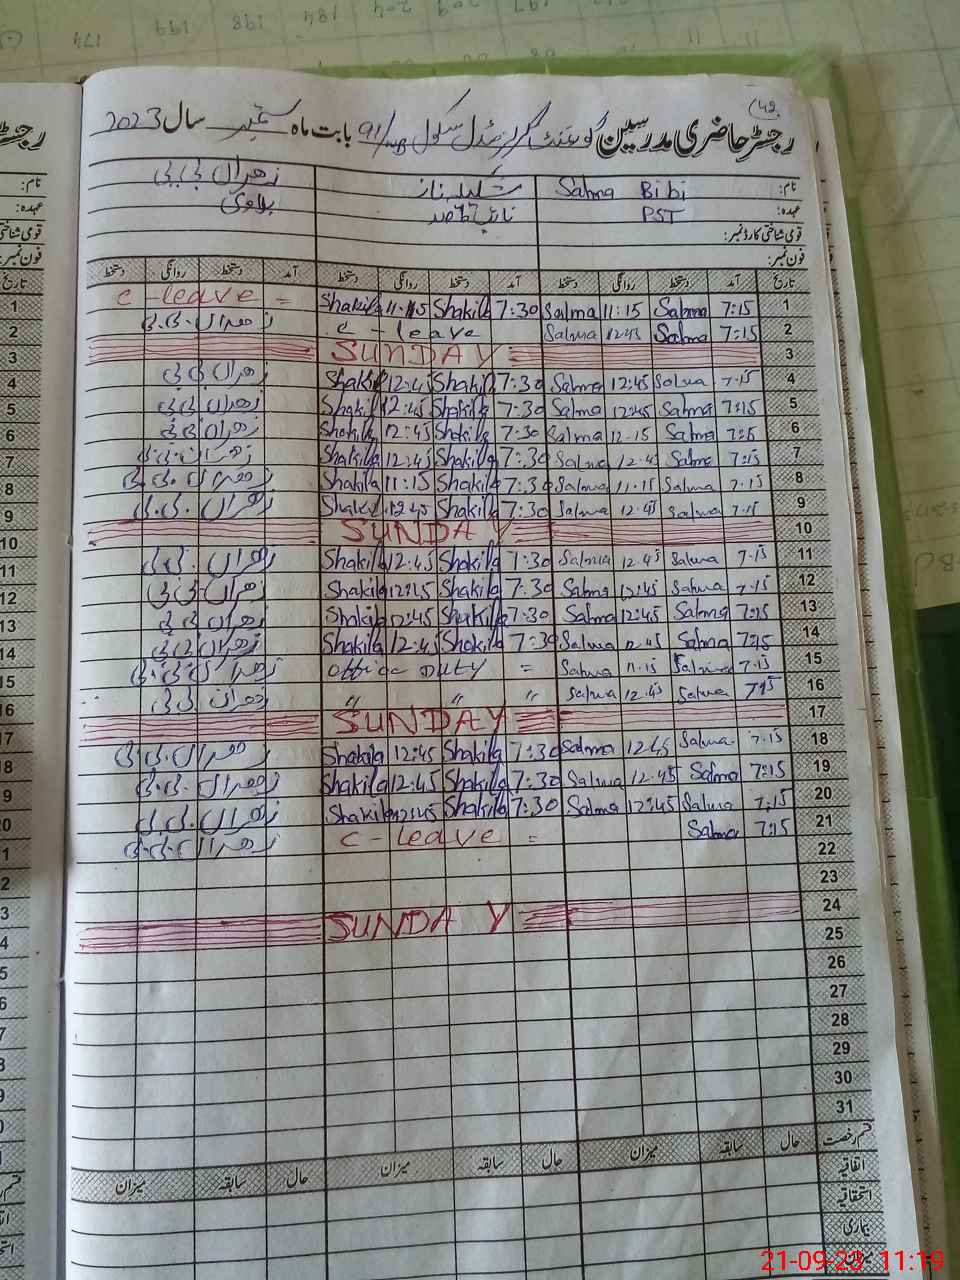 42
رجسٹر حاضری مدرسین گورنمنٹ گرلز مڈل سکول 91/WB بابت ماہ ستمبر سال 2023
نام: Salma Bibi شکیلہ ناز زھراں بی بی
عہدہ: PST نائب قاصد
قومی شناختی کارڈ نمبر:
فون نمبر:
تاریخ آمد دستخط روانگی دستخط آمد دستخط روانگی دستخط آمد دستخط روانگی دستخط
1 7:15 Salma 11:15 Salma 7:30 Shakila 11:15 Shakila C-leave =
2 7:15 Salma 12:45 Salma C-leave زھراں بی بی
3 SUNDAY
4 7:15 Salma 12:45 Salma 7:30 Shakila 12:45 Shakila زھراں بی بی
5 7:15 Salma 12:45 Salma 7:30 Shakila 12:45 Shakila زھراں بی بی
6 7:15 Salma 12:15 Salma 7:30 Shakila 12:45 Shakila زھراں بی بی
7 7:15 Salma 12:45 Salma 7:30 Shakila 12:45 Shakila زھراں بی بی
8 7:15 Salma 11:15 Salma 7:30 Shakila 11:15 Shakila زھراں بی بی
9 7:15 Salma 12:45 Salma 7:30 Shakila 12:45 Shakila زھراں بی بی
10 SUNDAY
11 7:15 Salma 12:45 Salma 7:30 Shakila 12:45 Shakila زھراں بی بی
12 7:15 Salma 12:45 Salma 7:30 Shakila Shakila زھراں بی بی
13 7:15 Salma 12:45 Salma 7:30 Shakila 12:45 Shakila زھراں بی بی
14 7:15 Salma 12:45 Salma 7:30 Shakila 12:45 Shakila زھراں بی بی
15 7:15 Salma 11:15 Salma office duty = زھراں بی بی
16 7:15 Salma 12:45 Salma " " " زھراں بی بی
17 SUNDAY
18 7:15 Salma 12:45 Salma 7:30 Shakila 12:45 Shakila زھراں بی بی
19 7:15 Salma 12:45 Salma 7:30 Shakila 12:45 Shakila زھراں بی بی
20 7:15 Salma 12:45 Salma 7:30 Shakila 12:45 Shakila زھراں بی بی
21 7:15 Salma C-leave = زھراں بی بی
22
23
24 SUNDAY
25
26
27
28
29
30
31
قسم رخصت حال سابقہ میزان حال سابقہ میزان حال سابقہ میزان
اتفاقیہ
استحقاقیہ
بیماری
میزان
21-09-23 11:19